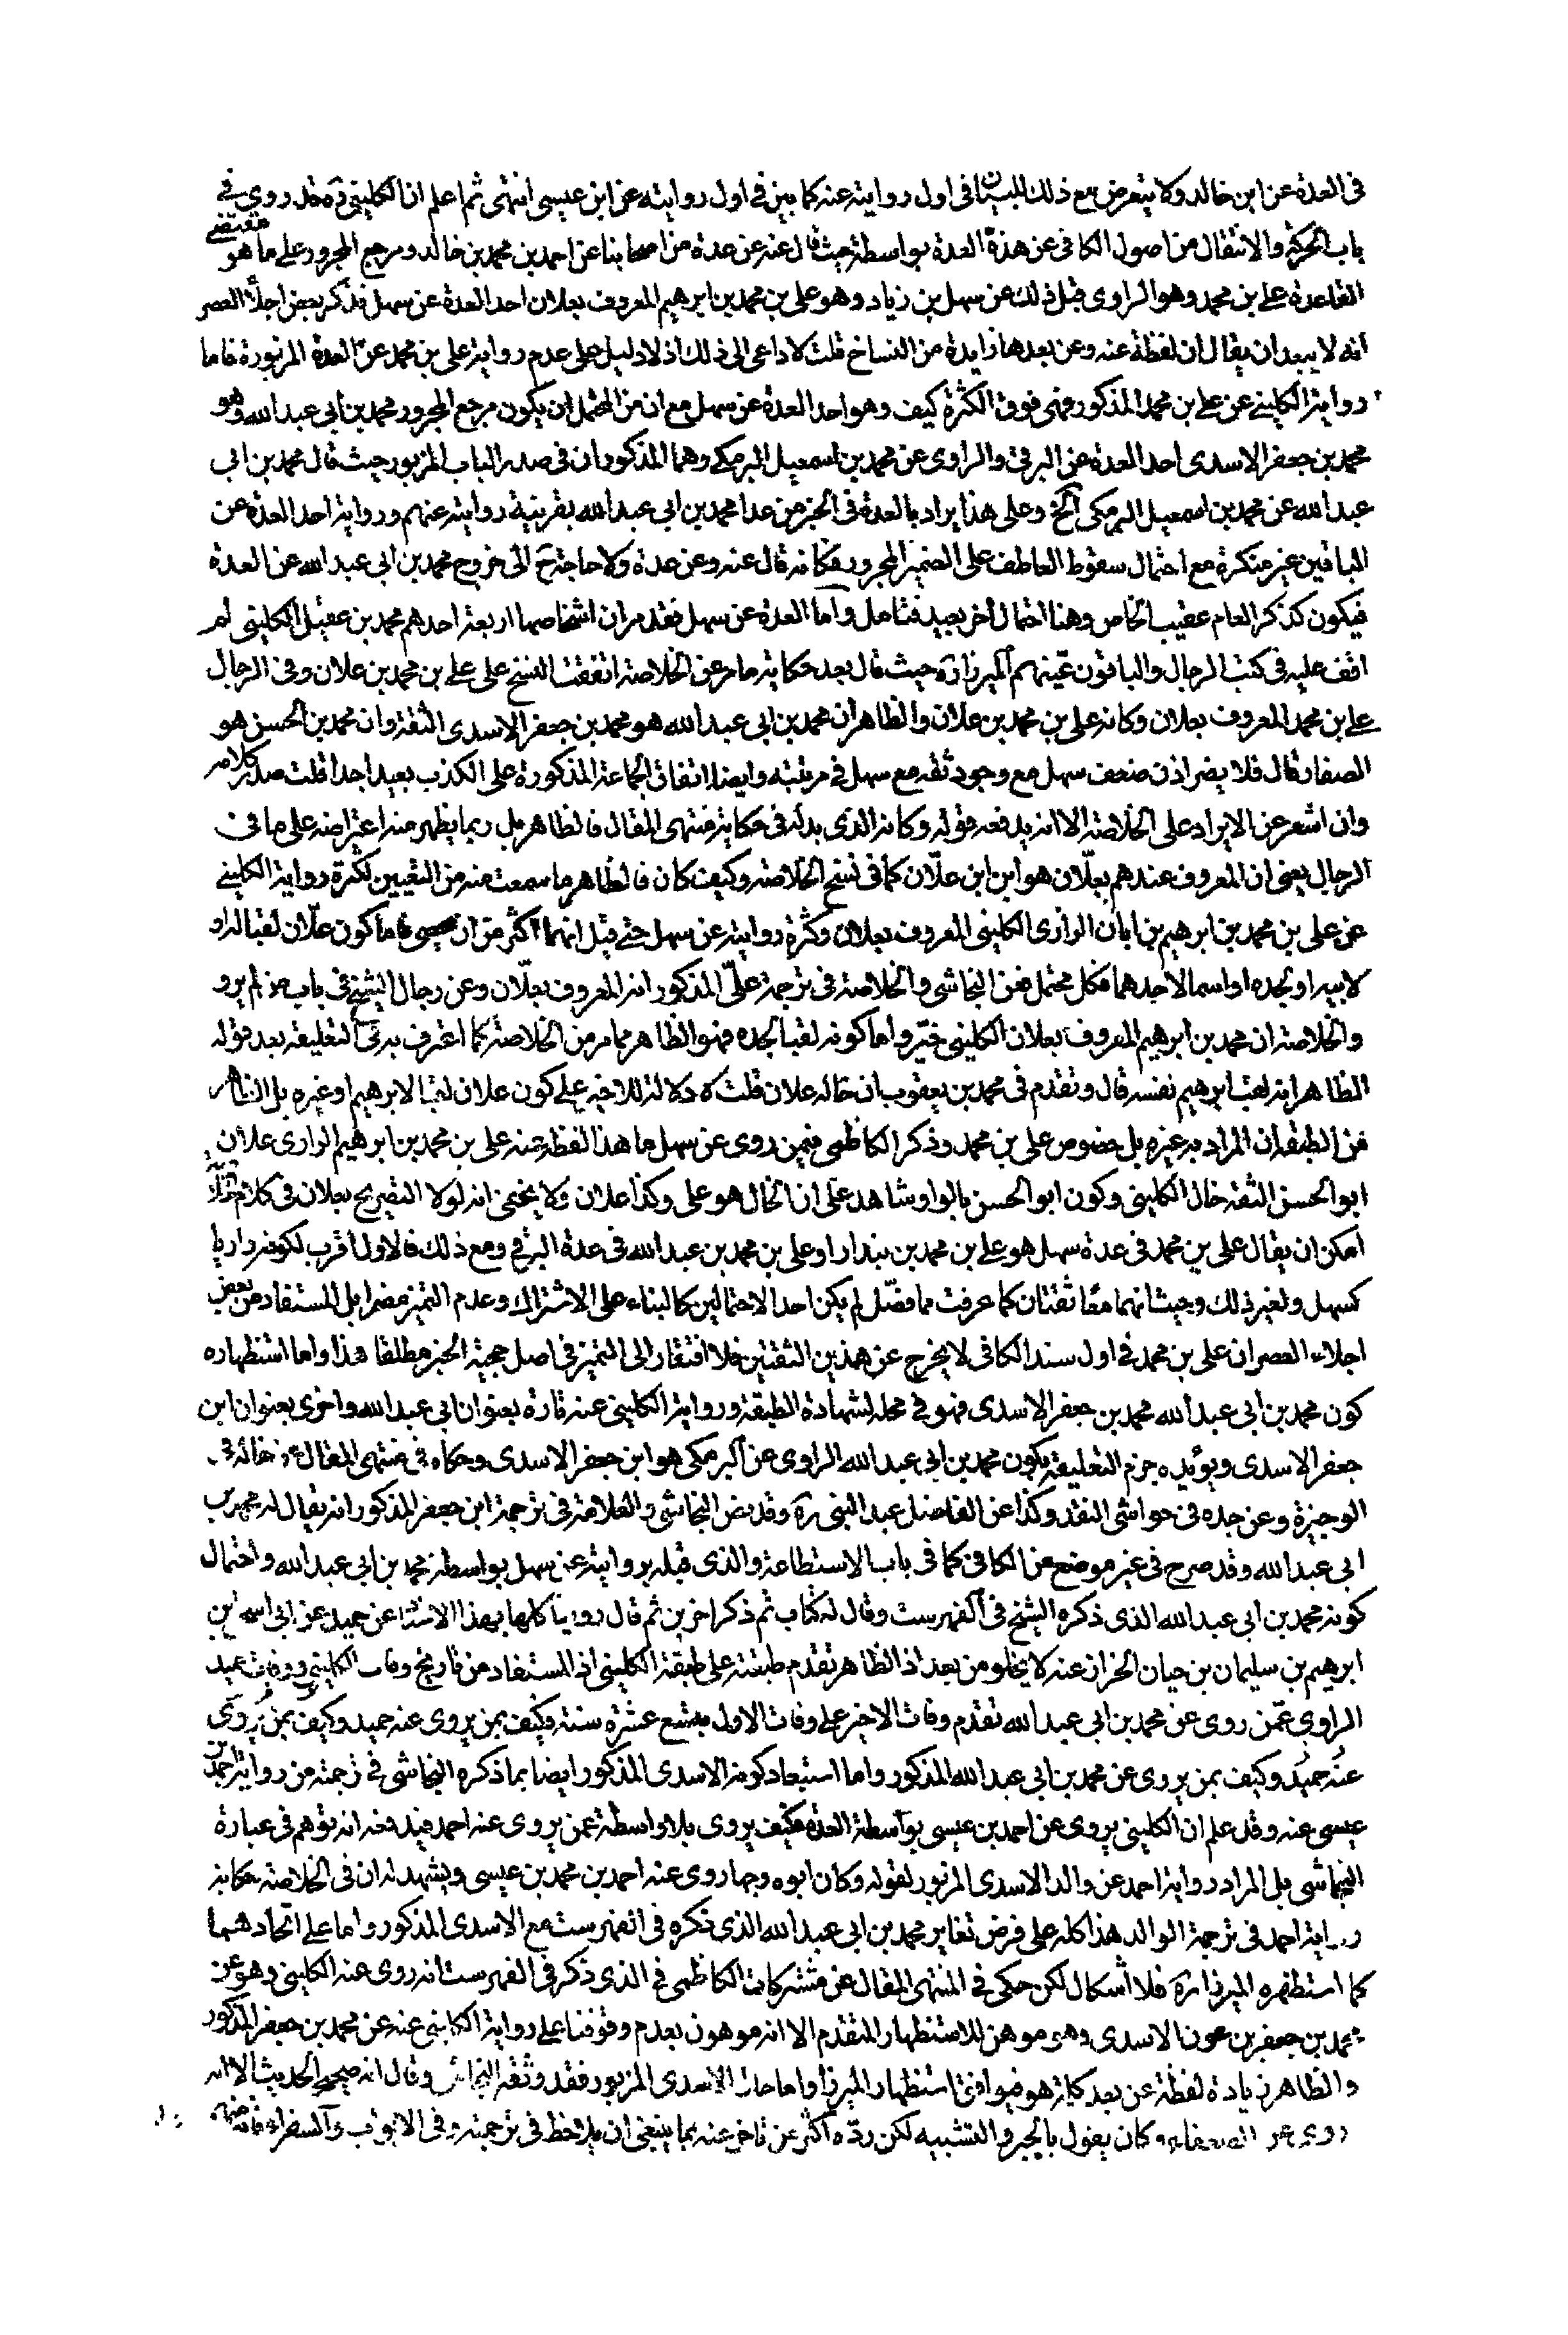 فى العدة عن ابن خالد ولا يتعرض مع ذلك للبيان فى اول روايته عنه كما بين فى اول روايته عن ابن عيسى انتهى ثم اعلم ان الكلينى ره قد روى فى
باب الحركة والانتقال من اصول الكافى عن هذه العدة بواسطة حيث قال عنه عن عدة من اصحابنا عن احمد بن محمد بن خالد ومرجع المجرور على ما هو مقتضى
القاعدة على بن محمد وهو الراوى قبل ذلك عن سهل بن زياد وهو على بن محمد بن ابرهيم المعروف بعلان احد العدة عن سهل فذكر بعض اجلاء العصر
انه لا يبعد ان يقال ان لفظة عنه وعن بعدها زايدة من النساخ قلت لا داعى الى ذلك اذ لا دليل على عدم رواية على بن محمد عن العدة المزبورة فاما
رواية الكلينى عن على بن محمد المذكور فهى فوق الكثرة كيف وهو احد العدة عن سهل مع ان من المحتمل ان يكون مرجع المجرور محمد بن ابى عبد الله وهو
محمد بن جعفر الاسدى احد العدة عن البرقى والراوى عن محمد بن اسمعيل البرمكى وهما المذكوران فى صدر الباب المزبور حيث قال محمد بن ابى
عبد الله عن محمد بن اسمعيل البرمكى الخ وعلى هذا يراد بالعدة فى الخبر من عدا محمد بن ابى عبد الله بقرينة روايته عنهم ورواية احد العدة عن
الباقين غير منكرة مع احتمال سقوط العاطف على الضمير المجرور فكانه قال عنه وعن عدة ولا حاجة ح الى خروج محمد بن ابى عبد الله عن العدة
فيكون كذكر العام عقيب الخاص وهنا احتمال اخر بعيد فتامل واما العدة عن سهل فقد مر ان اشخاصها اربعة احدهم محمد بن عقيل الكلينى لم
اقف عليه فى كتب الرجال والباقون عينهم الميرزا ره حيث قال بعد حكاية ما مر عن الخلاصة اتفقت النسخ على على بن محمد بن علان وفى الرجال
على بن محمد المعروف بعلان وكانه على بن محمد بن علان والظاهر ان محمد بن ابى عبد الله هو محمد بن جعفر الاسدى الثقة وان محمد بن الحسن هو
الصفار قال فلا يضر اذن ضعف سهل مع وجود ثقة مع سهل فى مرتبته وايضا اتفاق الجماعة المذكورة على الكذب بعيد جدا قلت صدر كلامه
وان اشعر عن الايراد على الخلاصة الا انه يدفعه قوله وكانه الذى بدله فى حكاية منتهى المقال فالظاهر بل ربما يظهر منه اعتراضه على ما فى
الرجال يعنى ان المعروف عندهم بعلان هو ابن ابن علان كما فى نسخ الخلاصة وكيف كان فالظاهر ما سمعت منه من التعيين لكثرة رواية الكلينى
عن على بن محمد بن ابرهيم بن ابان الرازى الكلينى المعروف بعلان وكثرة روايته عن سهل حتى قيل انهما اكثر من ان تحصى فاما كون علان لقبا له او
لابيه او لجده او اسما لاحدهما فكل محتمل فعن النجاشى والخلاصة فى ترجمة على المذكور انه المعروف بعلان وعن رجال الشيخ فى باب من لم يرو
والخلاصة ان محمد بن ابرهيم المعروف بعلان الكلينى خير واما كونه لقبا لجده فهو الظاهر مما مر من الخلاصة كما اعترف به فى التعليقة بعد قوله
الظاهر انه لقب ابرهيم نفسه قال وتقدم فى محمد بن يعقوب ان خاله علان قلت لا دلالة للاخير على كون علان لقبا لابرهيم او غيره بل الظاهر
من الطبقة ان المراد به غيره بل خصوص على بن محمد وذكر الكاظمى فيمن روى عن سهل ما هذا لفظه عنه على بن محمد بن ابرهيم الرازى علان
ابو الحسن الثقة خال الكلينى وكون ابو الحسن بالواو شاهد على ان الخال هو على وكذا علان ولا يخفى انه لولا التصريح بعلان فى كلام
امكن ان يقال على بن محمد فى عدة سهل هو على بن محمد بن بندار او على بن محمد بن عبد الله فى عدة البرقى ومع ذلك فالاول اقرب لكونه رازيا
كسهل ولغير ذلك وحيث انهما معا ثقتان كما عرفت مما فصل لم يكن احد الاحتمالين كالبناء على الاشتراك وعدم التميز مضرا بل المستفاد من بعض
اجلاء العصر ان على بن محمد فى اول سند الكافى لا يخرج عن هذين الثقتين فلا افتقار الى التميز فى اصل حجية الخبر مطلقا هذا واما استظهاره
كون محمد بن ابى عبد الله محمد بن جعفر الاسدى فهو فى محله لشهادة الطبقة ورواية الكلينى عنه تارة بعنوان ابى عبد الله واخرى بعنوان ابن
جعفر الاسدى ويؤيده جزم التعليقة بكون محمد بن ابى عبد الله الراوى عن البرمكى هو ابن جعفر الاسدى وحكاه فى منتهى المقال عن خاله فى
الوجيزة وعن جده فى حواشى النقد وكذا عن الفاضل عبد النبى ره وقد نص النجاشى والعلامة فى ترجمة ابن جعفر المذكور انه يقال له محمد بن
ابى عبد الله وقد صرح فى غير موضع من الكافى كما فى باب الاستطاعة والذى قبله بروايته عن سهل بواسطة محمد بن ابى عبد الله واحتمال
كونه محمد بن ابى عبد الله الذى ذكره الشيخ فى الفهرست وقال له كتاب ثم ذكر اخرين ثم قال روينا كلها بهذا الاسناد عن حميد عن ابى اسحق
ابرهيم بن سليمان بن حيان الخزاز عنه لا يخلو من بعد اذ الظاهر تقدم طبقته على طبقة الكلينى اذ المستفاد من تاريخ وفات الكلينى ووفات حميد
الراوى عمن روى عن محمد بن ابى عبد الله تقدم وفات الاخير على وفات الاول بتسع عشرة سنة فكيف بمن يروى عنه حميد وكيف بمن يروى
عنه حميد وكيف بمن يروى عن محمد بن ابى عبد الله المذكور واما استبعاد كونه الاسدى المذكور ايضا بما ذكره النجاشى فى ترجمته من رواية احمد بن
عيسى عنه وقد علم ان الكلينى يروى عن احمد بن عيسى بواسطة العدة فكيف يروى بلا واسطة عمن يروى عنه احمد فيدفعه انه توهم فى عبارة
النجاشى بل المراد رواية احمد عن والد الاسدى المزبور لقوله وكان ابوه وجها روى عنه احمد بن محمد بن عيسى ويشهد له ان فى الخلاصة حكاية
رواية احمد فى ترجمة الوالد هذا كله على فرض تغاير محمد بن ابى عبد الله الذى ذكره فى الفهرست مع الاسدى المذكور واما على اتحادهما
كما استظهره الميرزا ره فلا اشكال لكن حكى فى المنتهى المقال عن مشتركات الكاظمى فى الذى ذكر فى الفهرست انه روى عنه الكلينى وهو عن
محمد بن جعفر بن عون الاسدى وهو موهن للاستظهار المتقدم الا انه موهون بعدم وقوفنا على رواية الكلينى عنه عن محمد بن جعفر المذكور
والظاهر زيادة لفظة عن بعد كلمة هو فيوافق استظهار الميرزا واما حال الاسدى المزبور فقد وثقه النجاشى وقال انه صحيح الحديث الا انه
روى عن الضعفاء وكان يقول بالجبر والتشبيه لكن رده اكثر من تاخر عنه بما ينبغى ان يلاحظ فى ترجمته وفى الابواب والسفراء